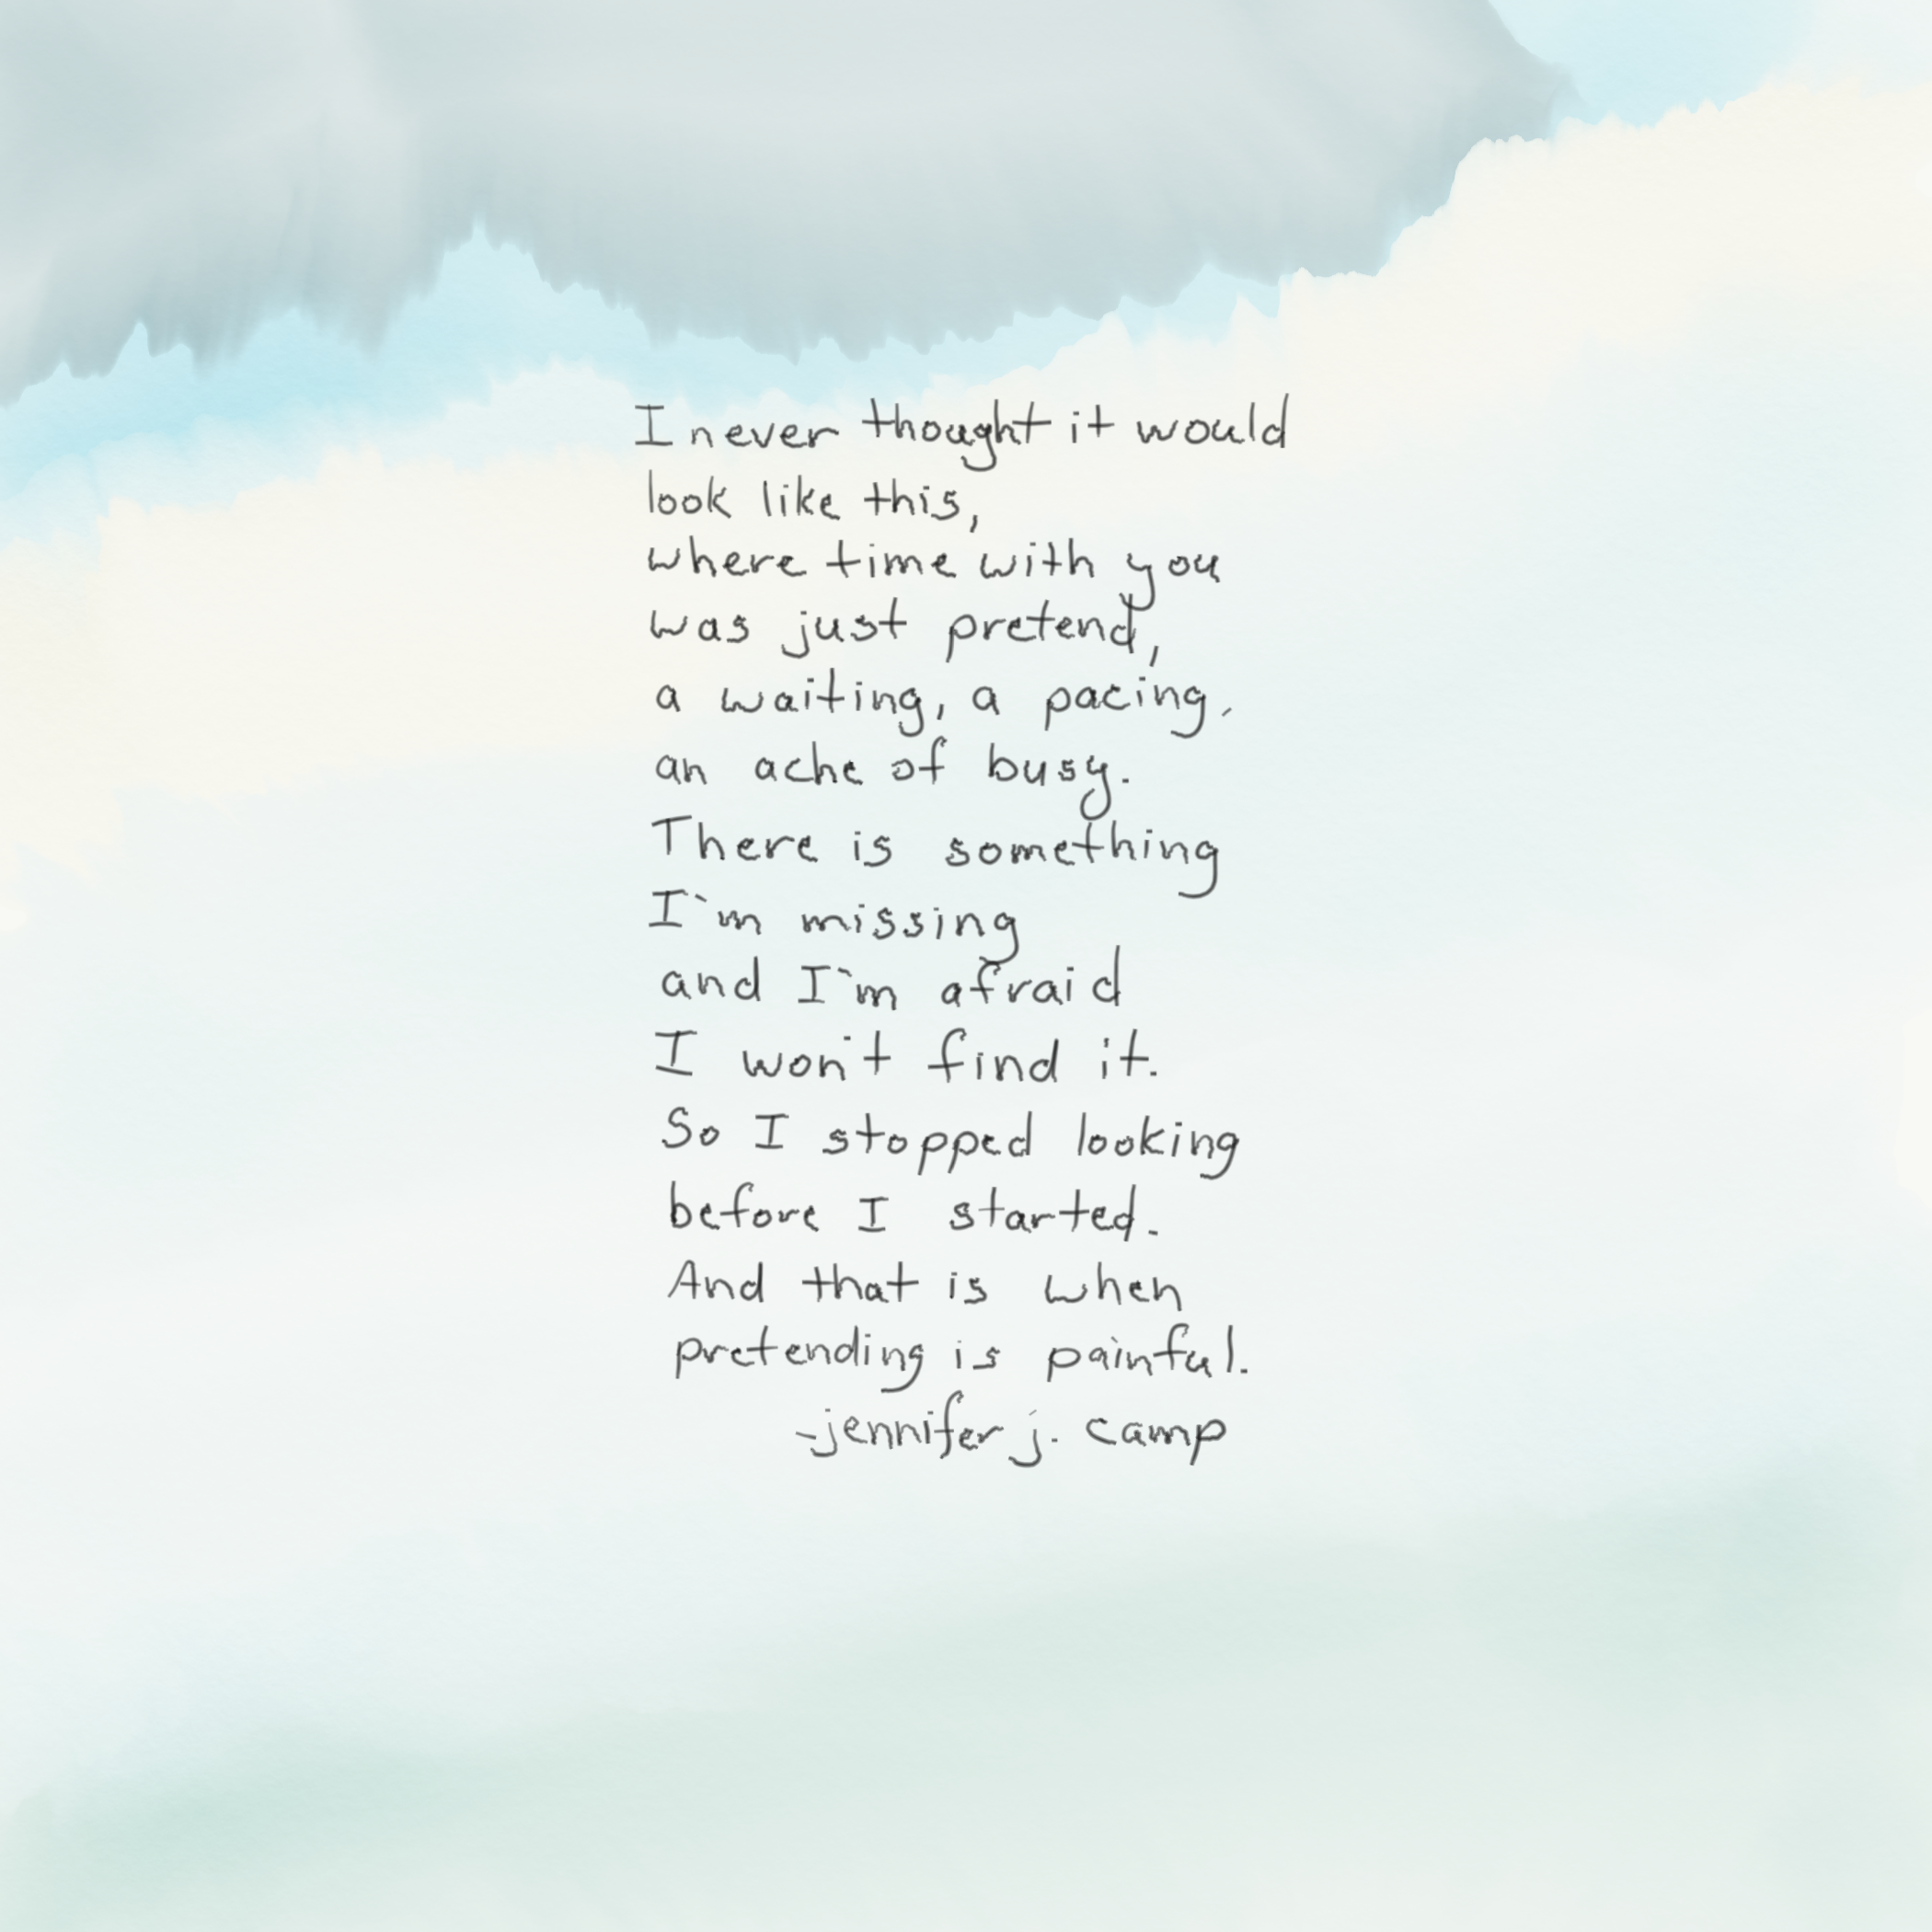 I never thought it would
look like this,
where time with you
was just pretend,
a waiting, a pacing,
an ache of busy.
There is something
I'm missing
and I'm afraid
I won't find it.
So I stopped looking
before I started.
And that is when
pretending is painful.
-jennifer j. camp